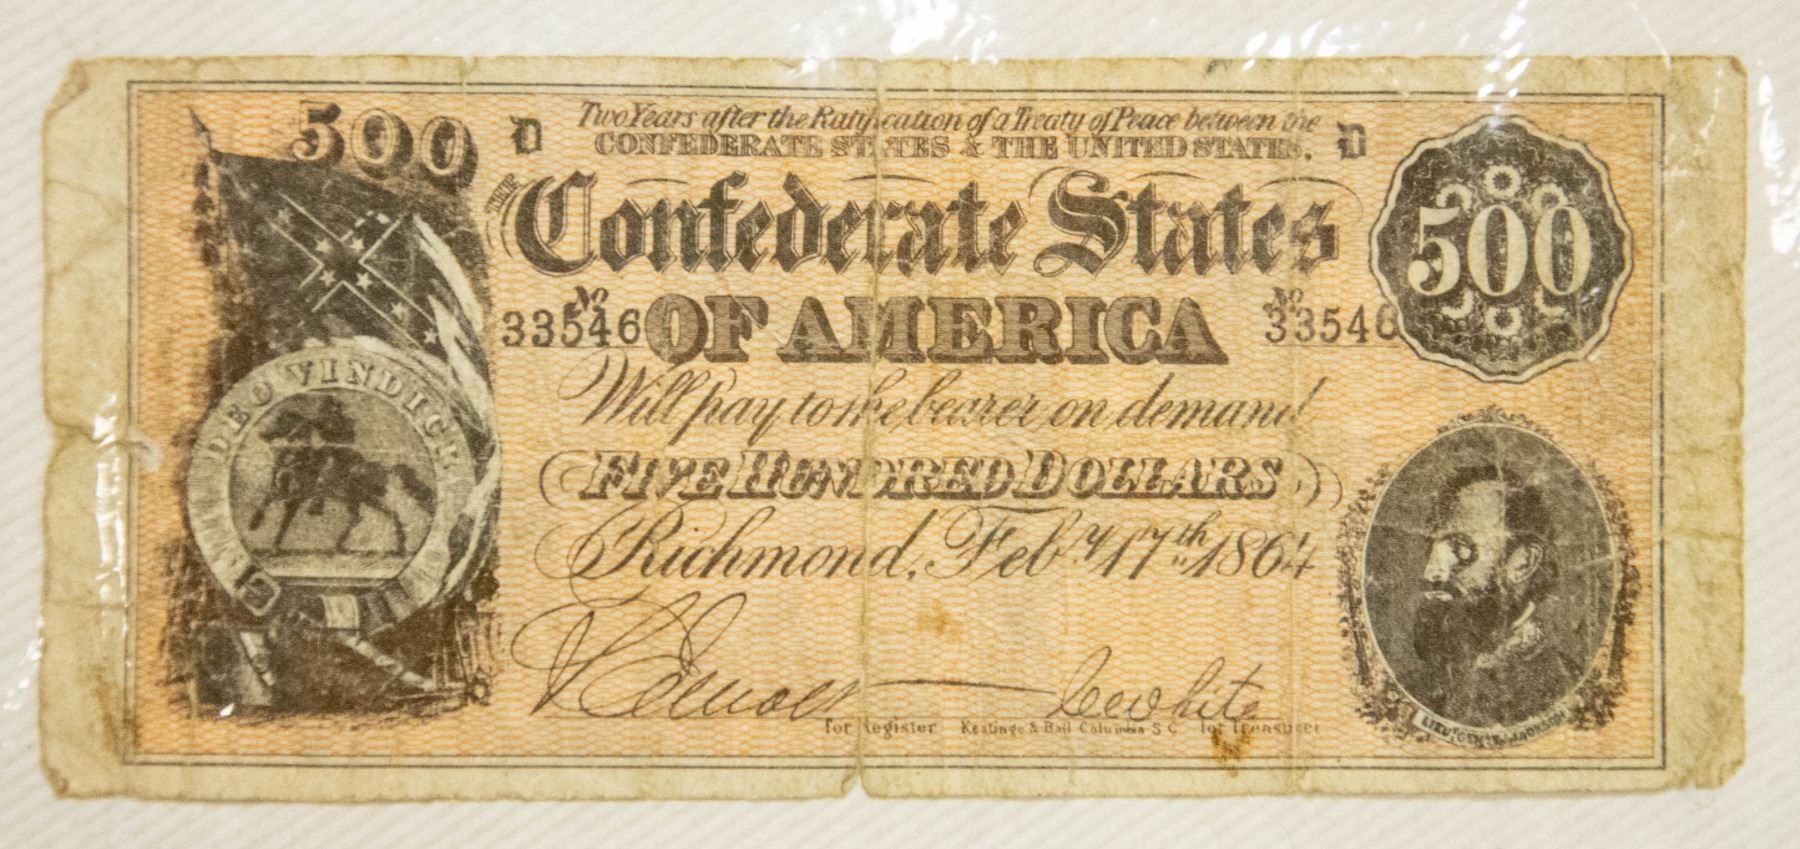 500
D Two Years after the Ratification of a Treaty of Peace between the D
CONFEDERATE STATES & THE UNITED STATES.
THE Confederate States
500
No 33546 OF AMERICA No 33546
Will pay to the bearer on demand
FIVE HUNDRED DOLLARS
Richmond, Feby 17th 1864
DEO VINDICE
for Register Keatinge & Ball Columbia S C for Treasurer
LIEUT. GEN. JACKSON